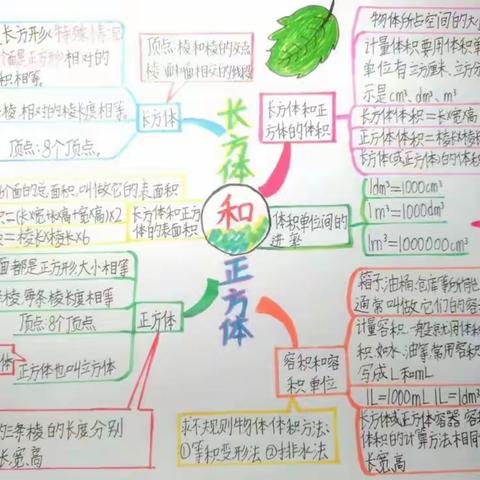 长方体和正方体
长方形(特殊情况
个面是正方形)相对的
积相等。
棱 相对的棱长度相等。
顶点:8个顶点。
长方体
顶点:棱和棱的交点
棱:面和面相交的线段
长方体和正
方体的体积
物体所占空间的大小
计量体积要用体积单
单位有立方厘米、立方分
示是cm³、dm³、m³
长方体体积=长×宽×高
正方体体积=棱长×棱长
长方体(或正方体)的体积
6个面的总面积,叫做它的表面积
=(长×宽+长×高+宽×高)×2
=棱长×棱长×6
长方体和正方
体的表面积
体积单位间的
进率
1dm³=1000cm³
1m³=1000dm³
1m³=1000000cm³
面都是正方形大小相等
棱 每条棱长度相等
顶点:8个顶点
正方体
体
正方体也叫立方体
三条棱的长度分别
长、宽、高
容积和容
积单位
箱子、油桶、仓库等所能
通常叫做它们的容
计量容积,一般就用体积
积,如水、油等,常用容积
写成L和mL
1L=1000mL 1L=1dm³
长方体或正方体容器容积
体积的计算方法相同
长、宽、高
求不规则物体体积方法:
①等积变形法 ②排水法